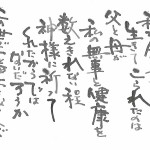 生きてこられたのは
父と母が
私の無事と健康を
数えきれない程
神様に祈って
くれたからでは
ないだろうか